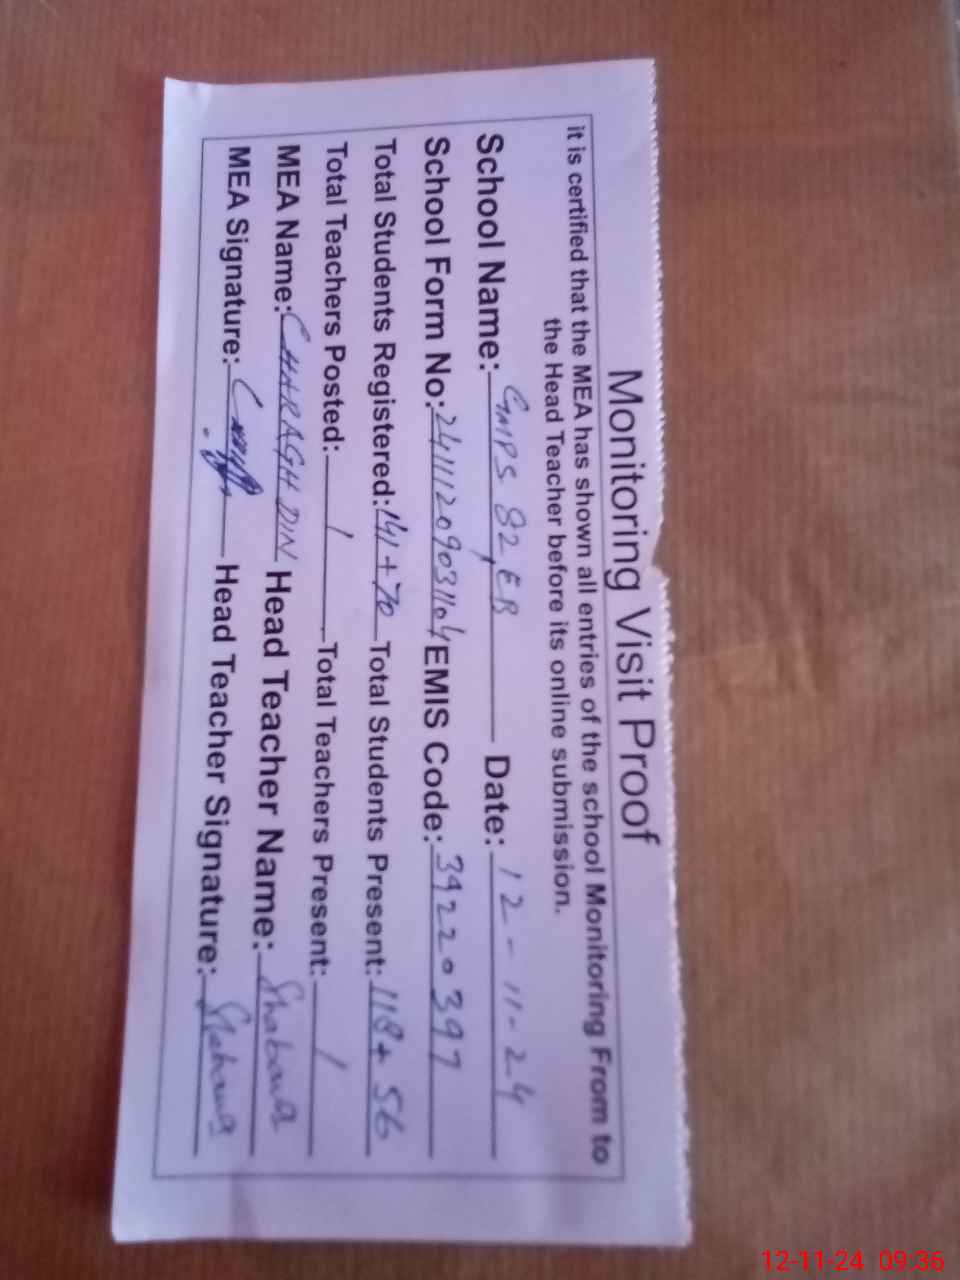 Monitoring Visit Proof
it is certified that the MEA has shown all entries of the school Monitoring From to
the Head Teacher before its online submission.
School Name: GMPS 82, EB Date: 12-11-24
School Form No: 24111209031104 EMIS Code: 39220397
Total Students Registered: 141+70 Total Students Present: 118+56
Total Teachers Posted: 1 Total Teachers Present: 1
MEA Name: CHARAGH DIN Head Teacher Name: Shabana
MEA Signature: Head Teacher Signature: Shabana
12-11-24 09:36